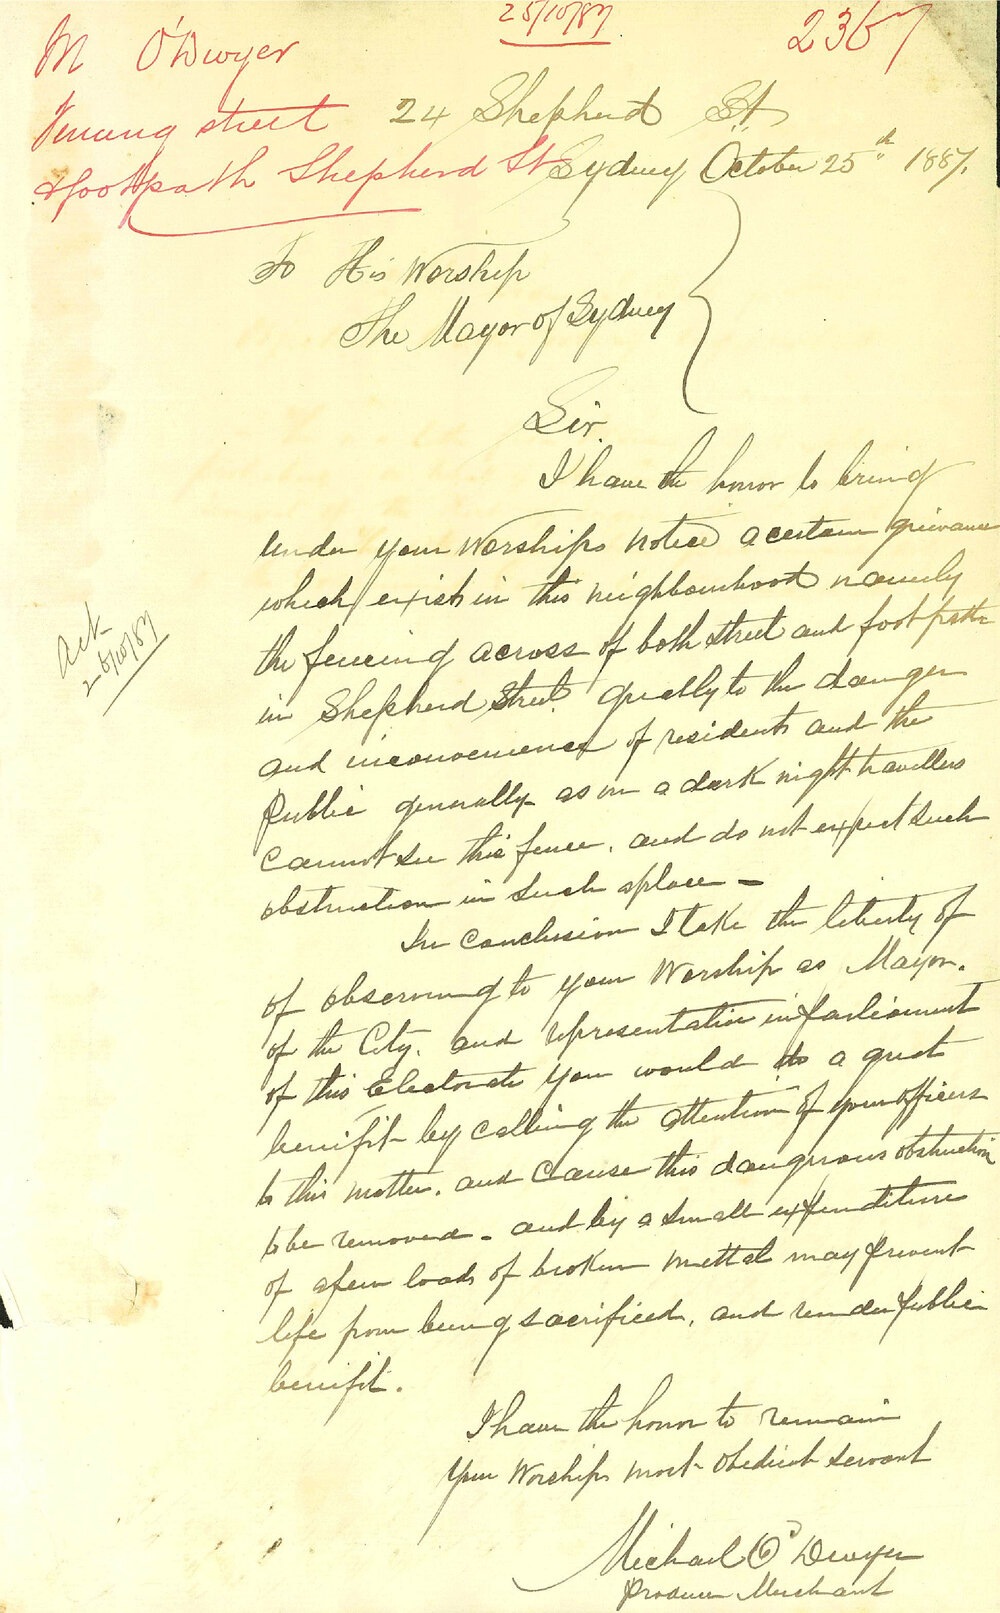 25/10/87
2367
M O'Dwyer
Fencing street
& footpath Shepherd St
24 Shepherd St
Sydney October 25th 1887.
To His Worship
The Mayor of Sydney
Sir.
I have the honor to bring
under your Worships notice a certain grievance
which exists in this neighbourhood namely
the fencing across of both street and footpath
in Shepherd Street. greatly to the danger
and inconvenience of residents and the
Public generally as on a dark night travellers
cannot see this fence. and do not expect such
obstruction in such a place -
In conclusion I take the liberty of
of observing to your Worship as Mayor.
of the City. and representative in Parliament
of this Electorate you would do a great
benifit by calling the attention of your officers
to this matter. and cause this dangerous obstruction
to be removed - and by a small expenditure
of a few loads of broken mettal may prevent
life from being sacrificed, and render public
benifit.
I have the honor to remain
Your Worships most obedient servant
Michael O'Dwyer
Produce Merchant
Ack
26/10/87